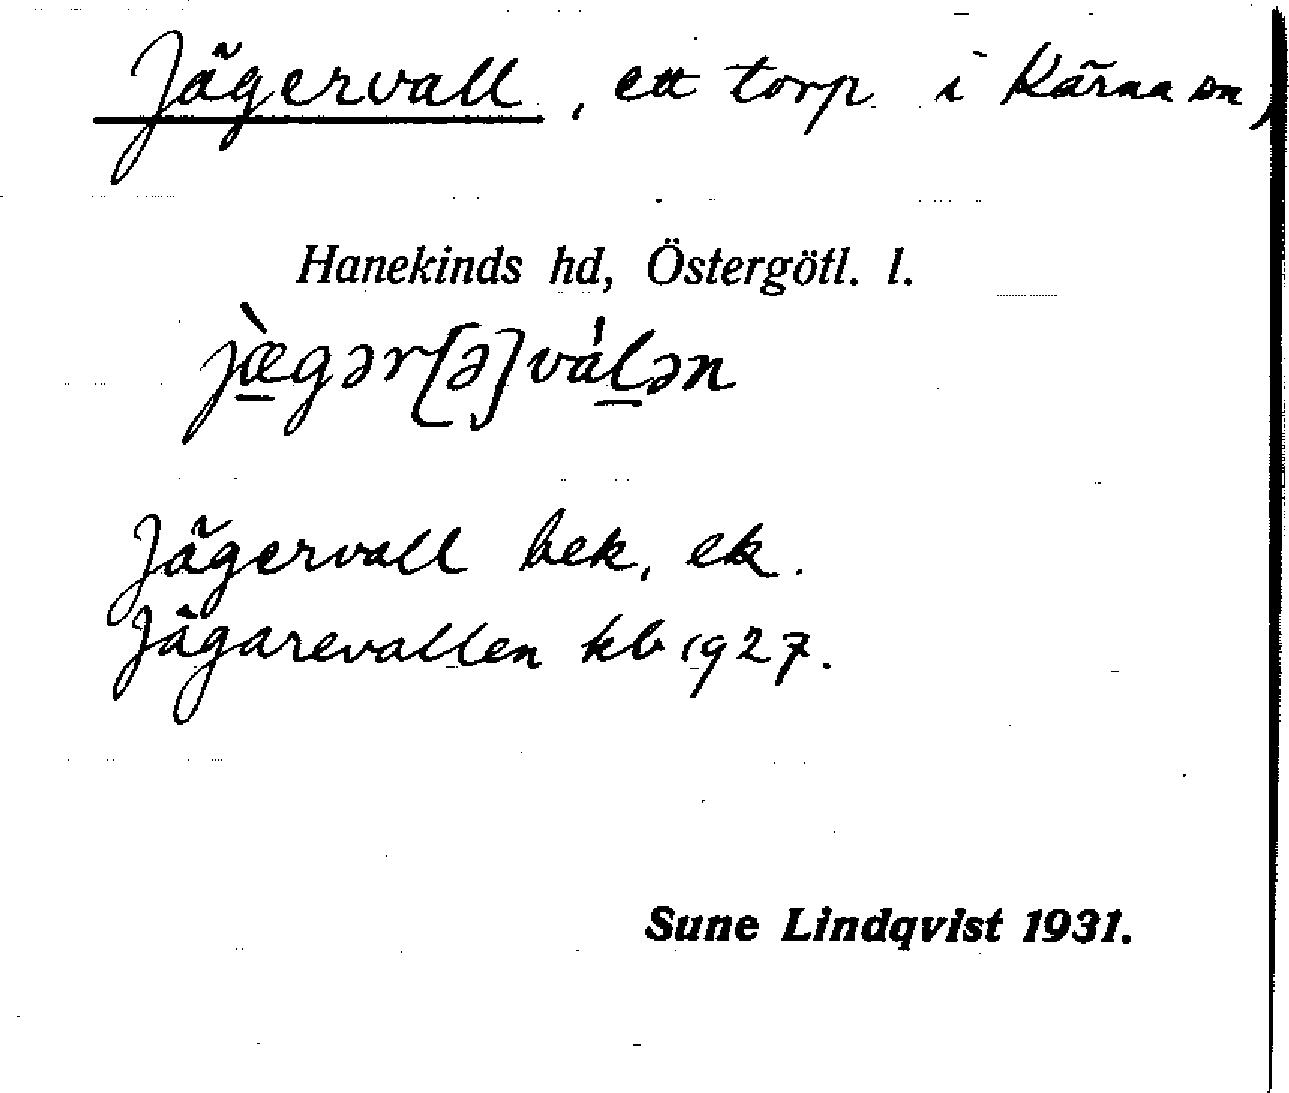 Jägervall, ett torp i Kärna sn,
Hanekinds hd, Östergötl. l.
jæ̀gər[ə]válən
Jägervall bek, ek.
Jägarevallen kb 1927.
Sune Lindqvist 1931.